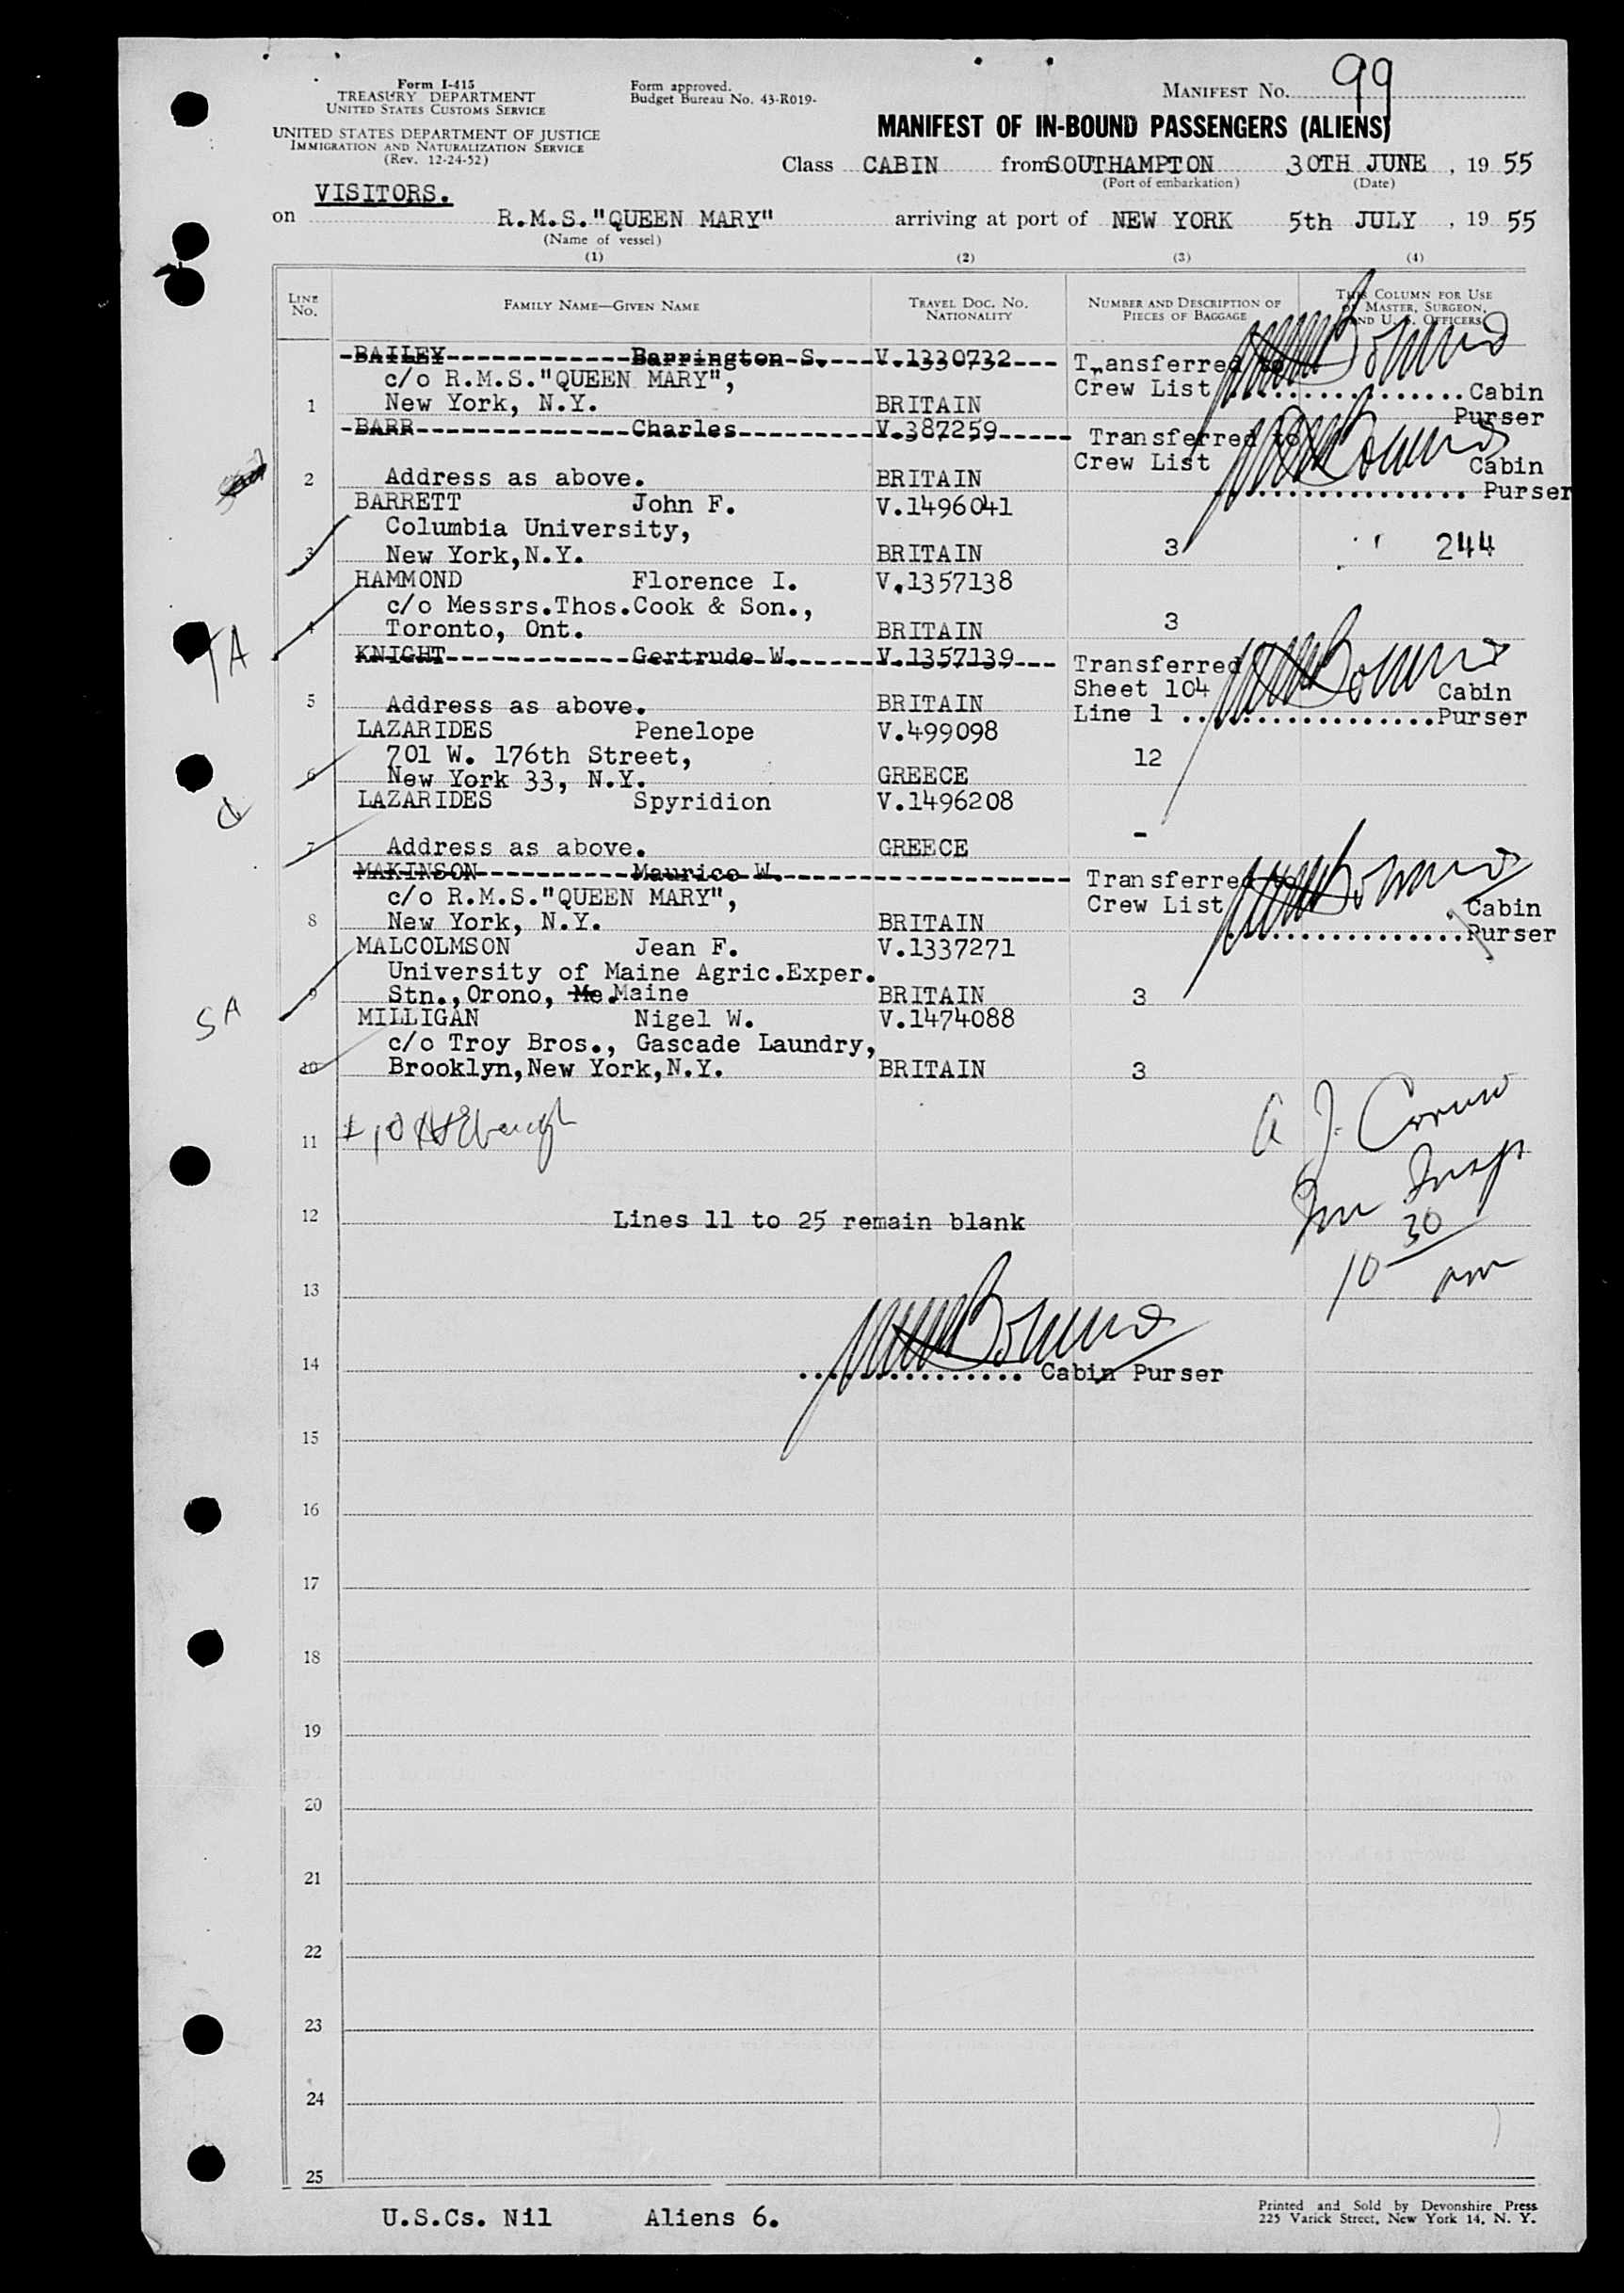 Form I-415
TREASURY DEPARTMENT
UNITED STATES CUSTOMS SERVICE
UNITED STATES DEPARTMENT OF JUSTICE
IMMIGRATION AND NATURALIZATION SERVICE
(Rev. 12-24-52)
Form approved.
Budget Bureau No. 43-R019-
MANIFEST NO. 99
MANIFEST OF IN-BOUND PASSENGERS (ALIENS)
Class CABIN from SOUTHAMPTON 30TH JUNE, 19 55
(Port of embarkation) (Date)
VISITORS.
on R.M.S."QUEEN MARY" arriving at port of NEW YORK 5th JULY, 19 55
(Name of vessel)
(1) (2) (3) (4)
LINE NO. FAMILY NAME—GIVEN NAME TRAVEL DOC. NO. NATIONALITY NUMBER AND DESCRIPTION OF PIECES OF BAGGAGE THIS COLUMN FOR USE OF MASTER, SURGEON, AND U. S. OFFICERS
BAILEY Barrington S. V.1330732 Transferred to
c/o R.M.S."QUEEN MARY", Crew List Cabin
1 New York, N.Y. BRITAIN Purser
BARR Charles V.387259 Transferred to
Crew List Cabin
2 Address as above. BRITAIN Purser
BARRETT John F. V.1496041
Columbia University,
3 New York,N.Y. BRITAIN 3 244
HAMMOND Florence I. V.1357138
c/o Messrs.Thos.Cook & Son.,
TA 4 Toronto, Ont. BRITAIN 3
KNIGHT Gertrude W. V.1357139 Transferred
Sheet 104 Cabin
5 Address as above. BRITAIN Line 1 Purser
LAZARIDES Penelope V.499098
701 W. 176th Street, 12
6 New York 33, N.Y. GREECE
LAZARIDES Spyridion V.1496208
7 Address as above. GREECE -
MAKINSON Maurice W. Transferred to
c/o R.M.S."QUEEN MARY", Crew List Cabin
8 New York, N.Y. BRITAIN Purser
MALCOLMSON Jean F. V.1337271
University of Maine Agric.Exper.
SA 9 Stn.,Orono, Me.Maine BRITAIN 3
MILLIGAN Nigel W. V.1474088
c/o Troy Bros., Gascade Laundry,
10 Brooklyn,New York,N.Y. BRITAIN 3
11
12 Lines 11 to 25 remain blank
10 30
13
14 Cabin Purser
15
16
17
18
19
20
21
22
23
24
25
U.S.Cs. Nil Aliens 6.
Printed and Sold by Devonshire Press
225 Varick Street, New York 14, N. Y.